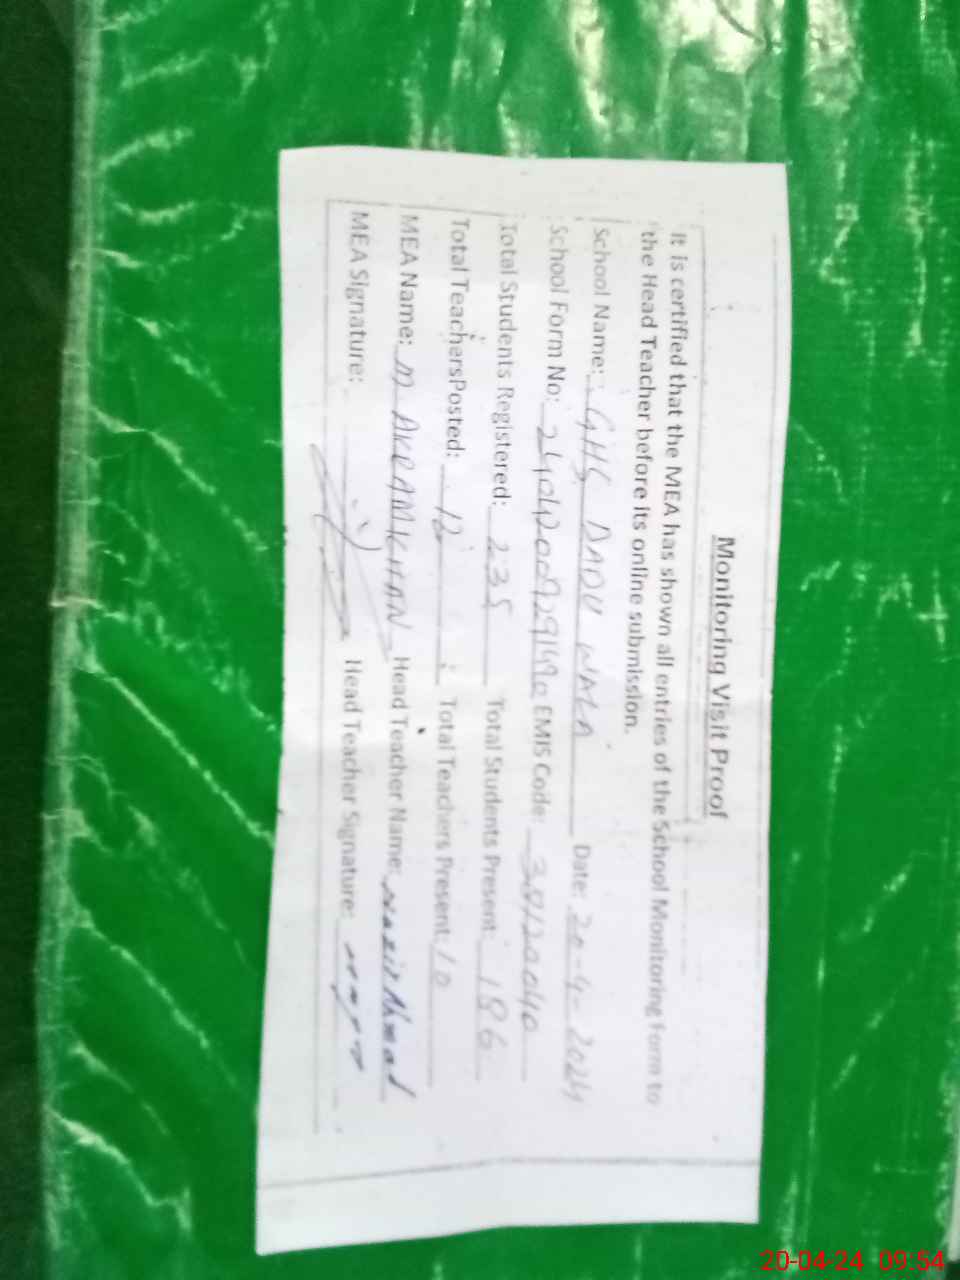 Monitoring Visit Proof
It is certified that the MEA has shown all entries of the School Monitoring Form to
the Head Teacher before its online submission.
School Name: GHS DADU WALA Date: 20-4-2024
School Form No: EMIS Code: 30120040
Total Students Registered: 235 Total Students Present: 186
Total TeachersPosted: 12 Total Teachers Present: 10
MEA Name: M AKRAM KHAN Head Teacher Name: Nazir Ahmad
MEA Signature: Head Teacher Signature:
20-04-24 09:54